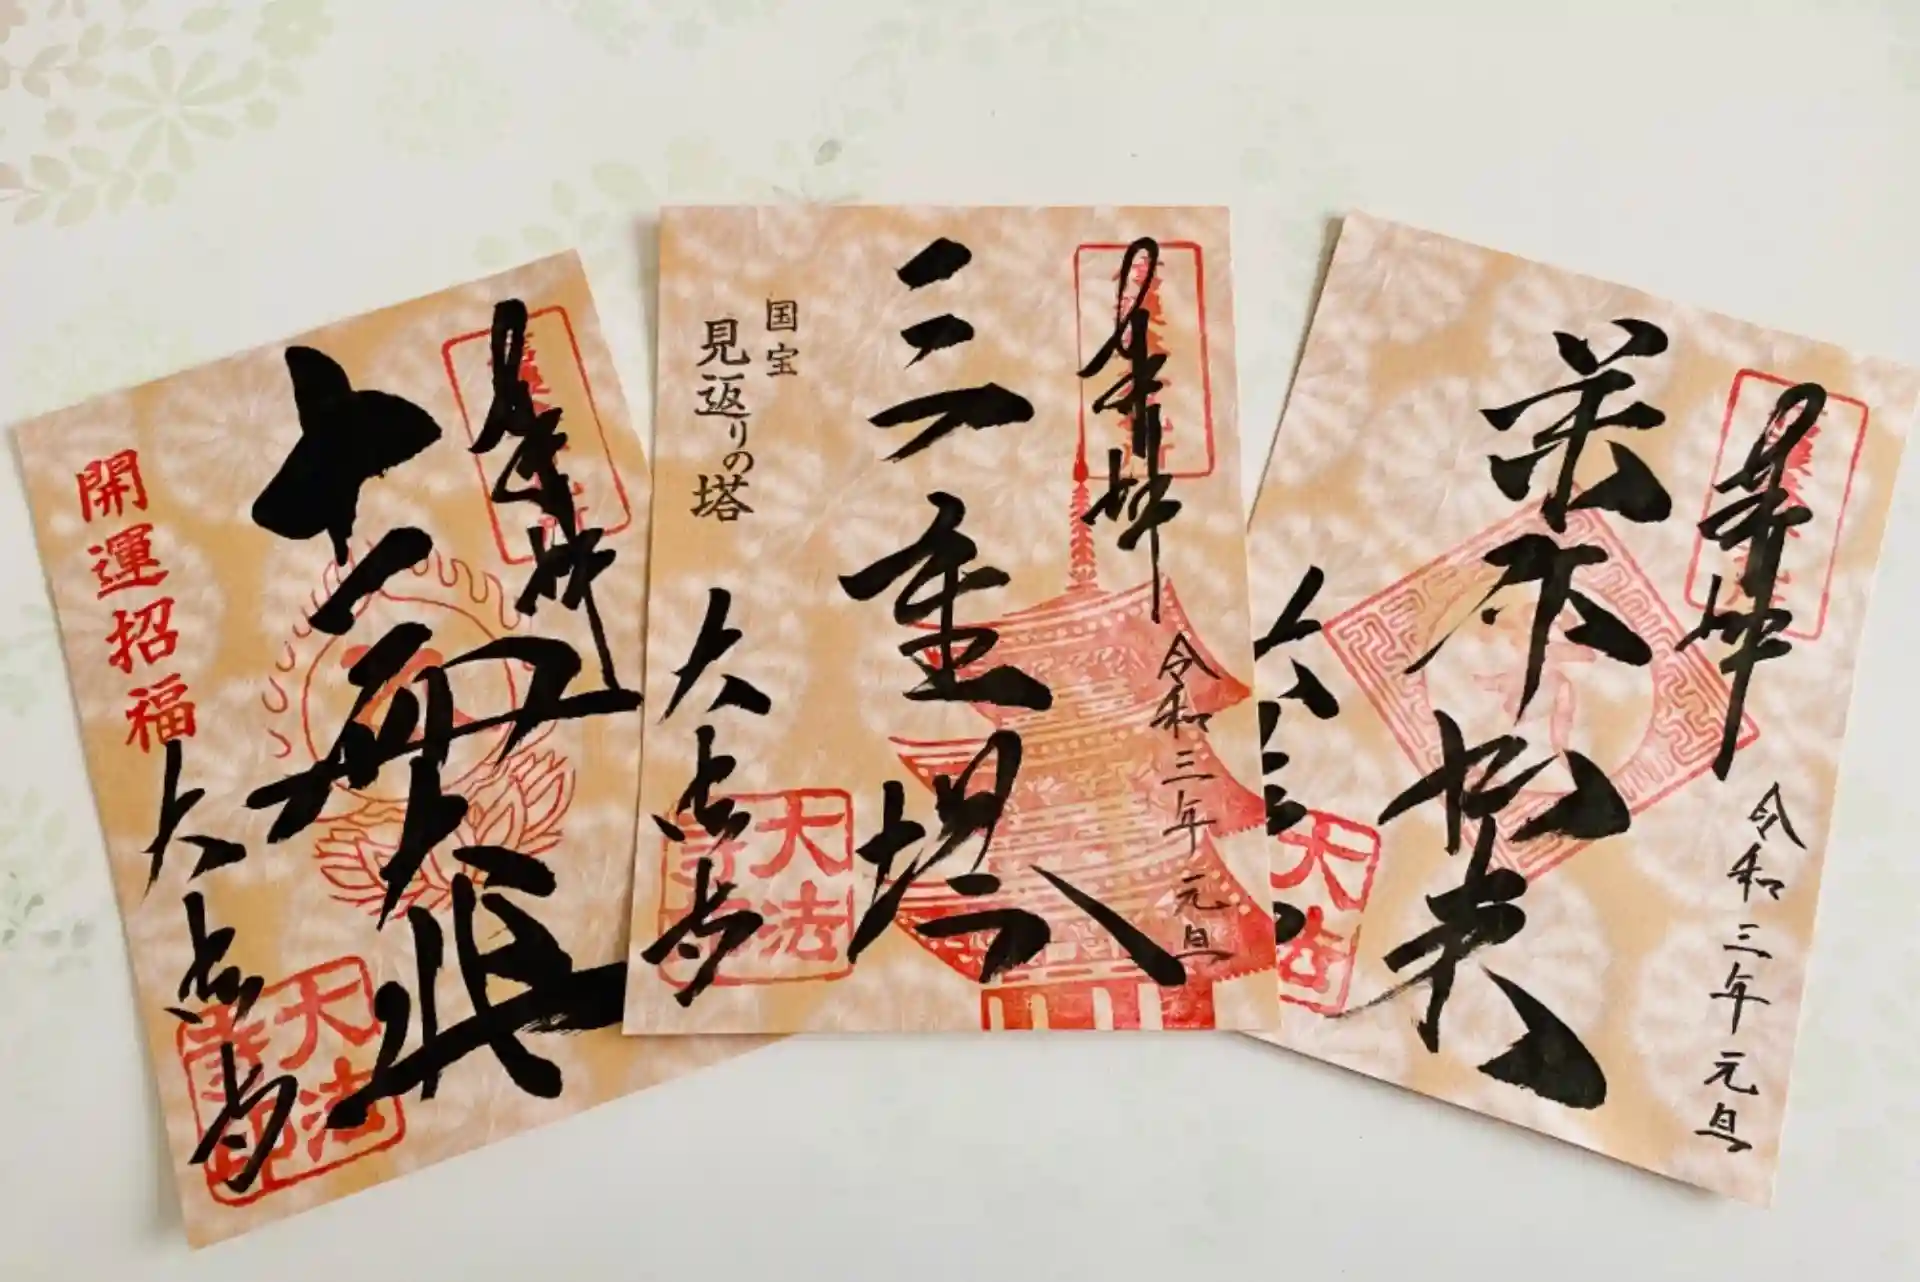 奉拝
開運招福
大法寺
大法寺印
奉拝
令和三年元旦
三重塔
国宝
見返りの塔
大法寺
大法寺印
奉拝
令和三年元旦
薬師如来
大法